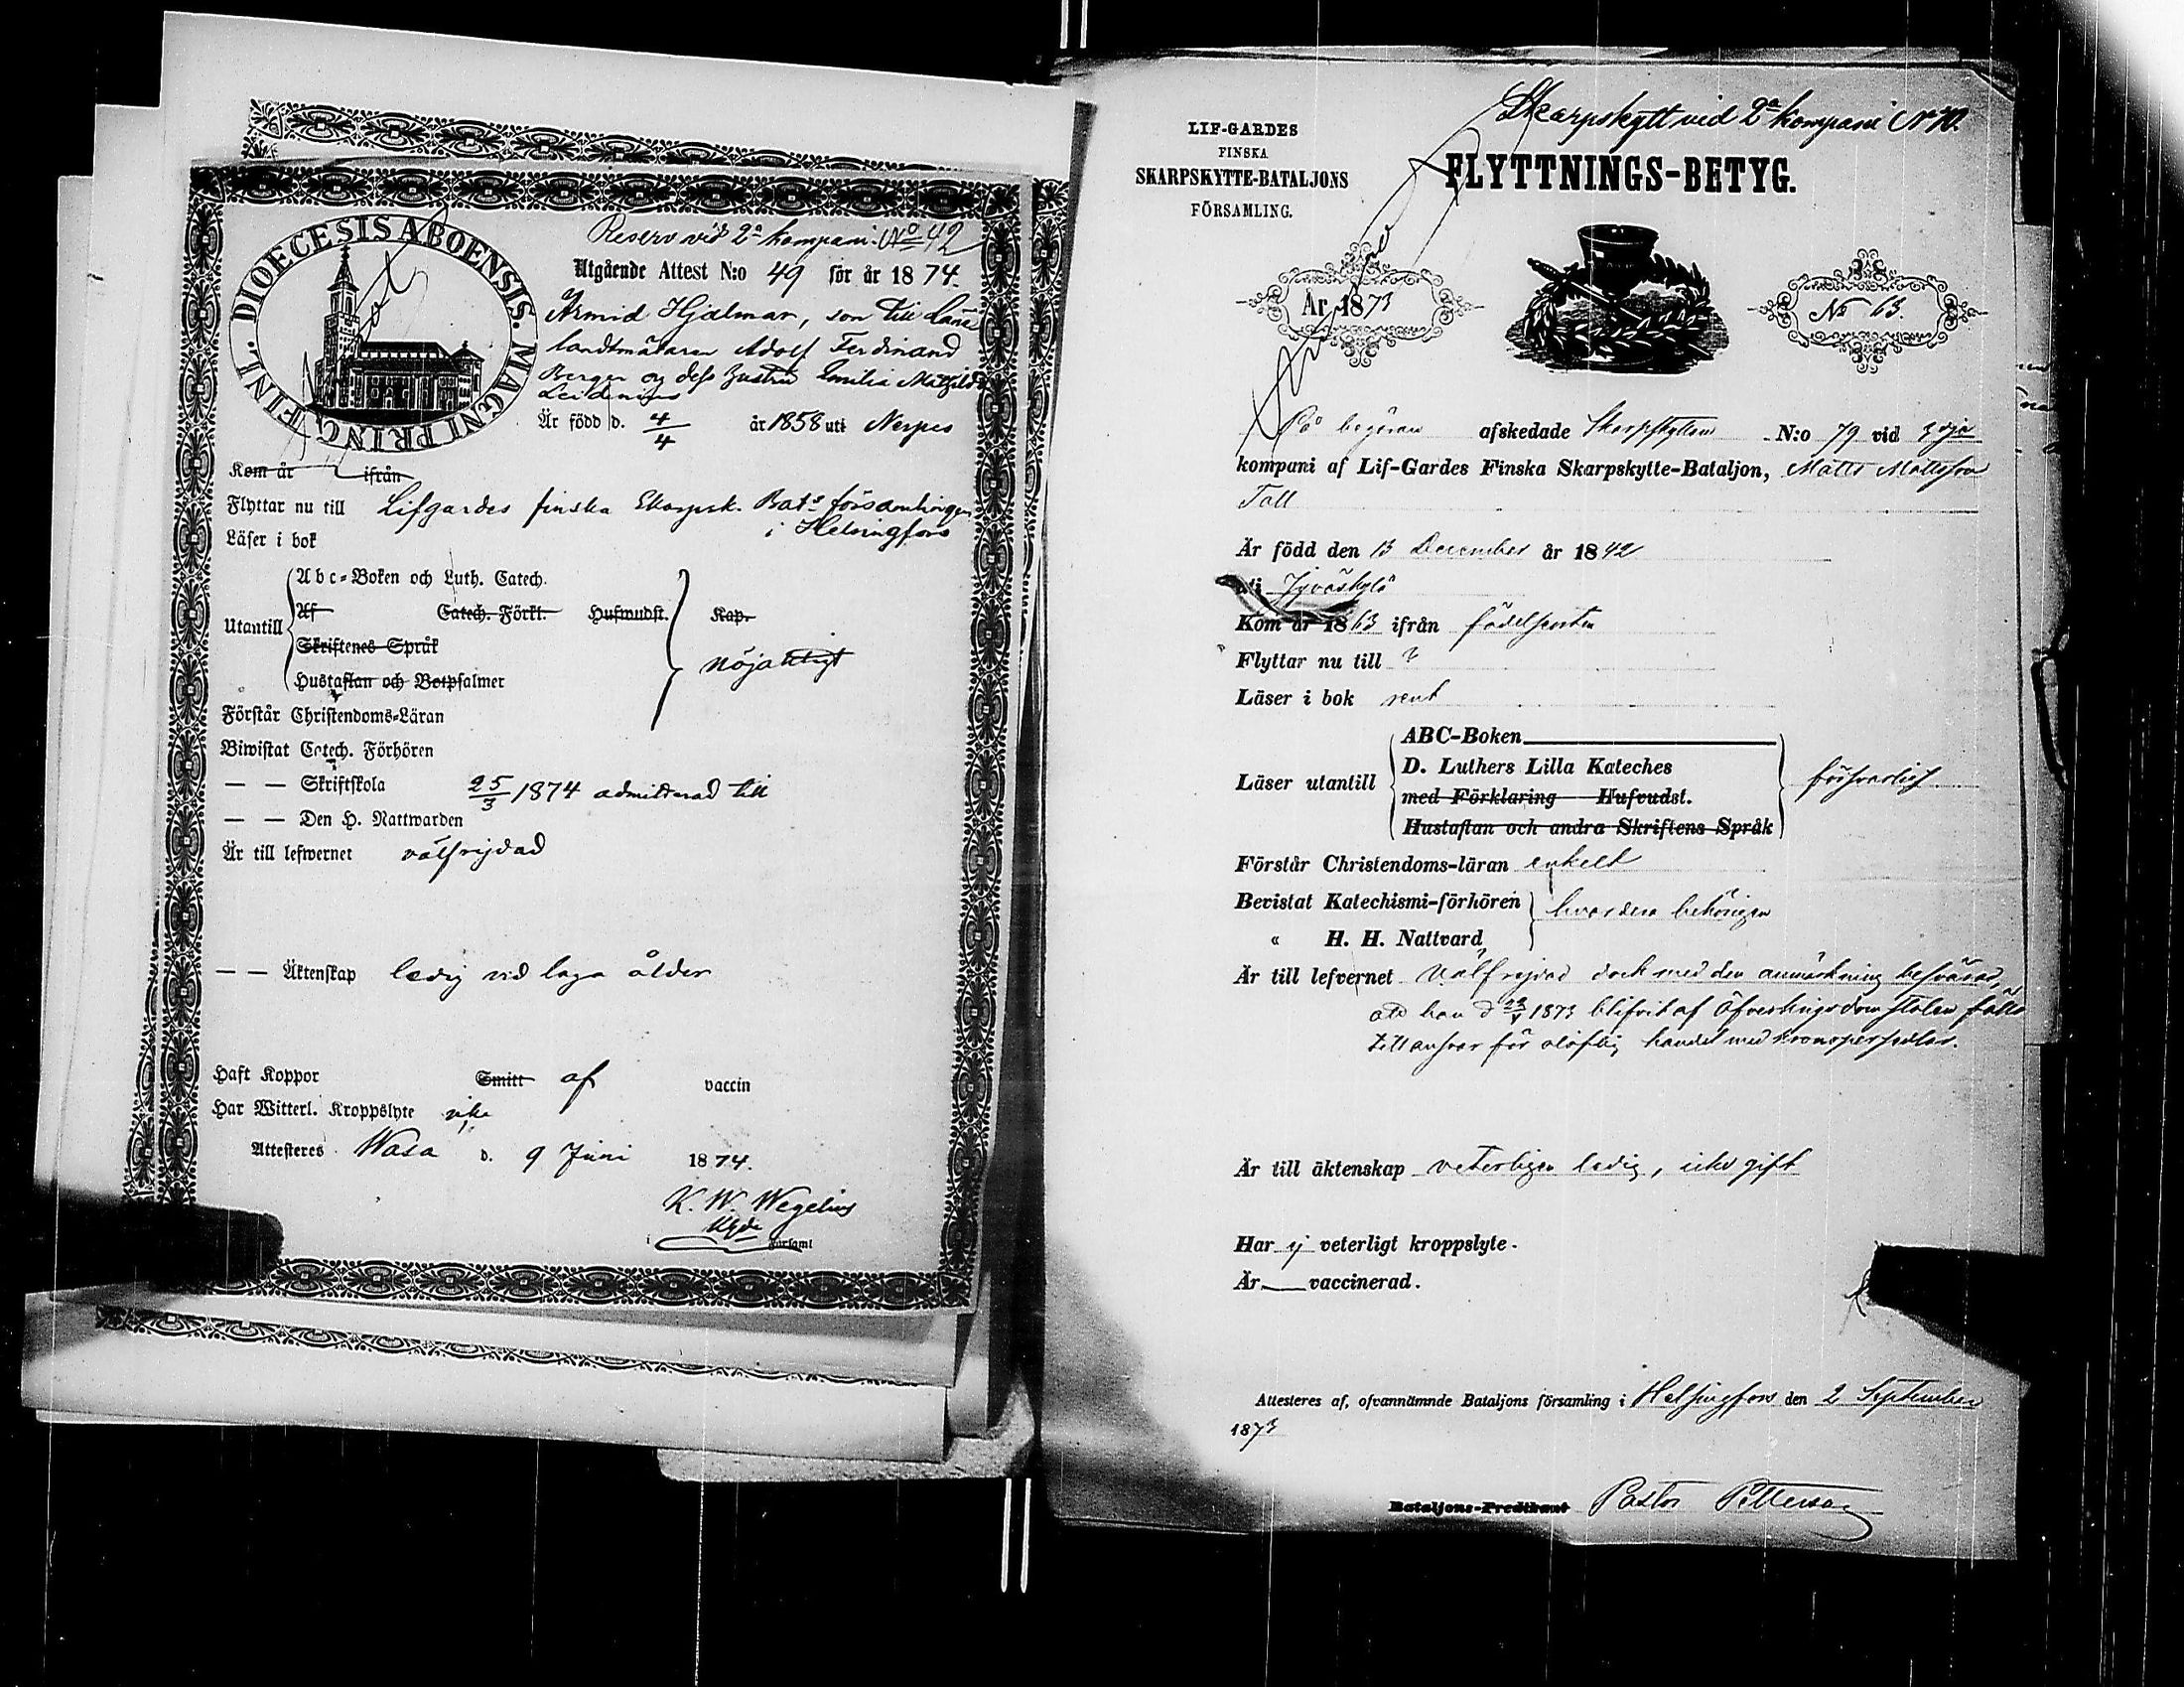 DIOECESIS ABOENSIS. MAGNI PRINC. FINL.
Reserv vid 2a kompani. No 42
Utgående Attest N:o 49 för år 1874.
Armid Hjalmar, son till Läne
landtmätaren Adolf Ferdinand
Berger og dess hustru Emilia Mathilda
Är född d. 4/4 år 1858 uti Nerpes
Kom år ifrån
Flyttar nu till Lifgardes finska Skarpsk. Bats församlingen
i Helsingfors
Läser i bok
Abc-Boken och Luth. Catech.
Utantill
Af Catech. Förkl. Hufwudst. Kap.
Skriftenes Språk
nöjaktigt
Hustaflan och Botpsalmer
Förstår Christendoms-Läran
Biwistat Catech. Förhören
— — Skriftskola 25/3 1874 admitterad till
— — Den H. Nattwarden
Är till lefwernet välfrejdad
— — Äktenskap ledig vid laga ålder
Haft Koppor Smitt af vaccin
Har Witterl. Kroppslyte icke
Attesteres Wasa d. 9 Juni 1874.
K. W. Wegelius
i Församl
Skarpskytt vid 2a kompani No 70.
LIF-GARDES
FINSKA
SKARPSKYTTE-BATALJONS
FÖRSAMLING.
FLYTTNINGS-BETYG.
År 1873
No 63.
På begäran afskedade Skarpskytten N:o 79 vid 3dje
kompani af Lif-Gardes Finska Skarpskytte-Bataljon, Matts Mattsson
Tall
Är född den 13 December år 1842
uti Jyväskylä
Kom år 1863 ifrån födelseorten
Flyttar nu till ?
Läser i bok rent
ABC-Boken
D. Luthers Lilla Kateches
Läser utantill försvarligt
med Förklaring Hufvudst.
Hustaflan och andra Skriftens Språk
Förstår Christendoms-läran enkelt
Bevistat Katechismi-förhören hvardera behörigen
« H. H. Nattvard
Är till lefvernet Välfrejdad dock med den anmärkning besvärad,
att han d 1873 blifvit af Öfverkrigsdomstolen fälld
till ansvar för olaflig handel med kronopersedlar.
Är till äktenskap veterligen ledig, icke gift
Har ej veterligt kroppslyte.
Är — vaccinerad.
Attesteres af, ofvannämnde Bataljons församling i Helsingfors den 2 September
1873
Bataljons-Predikant Pastor Pettersson